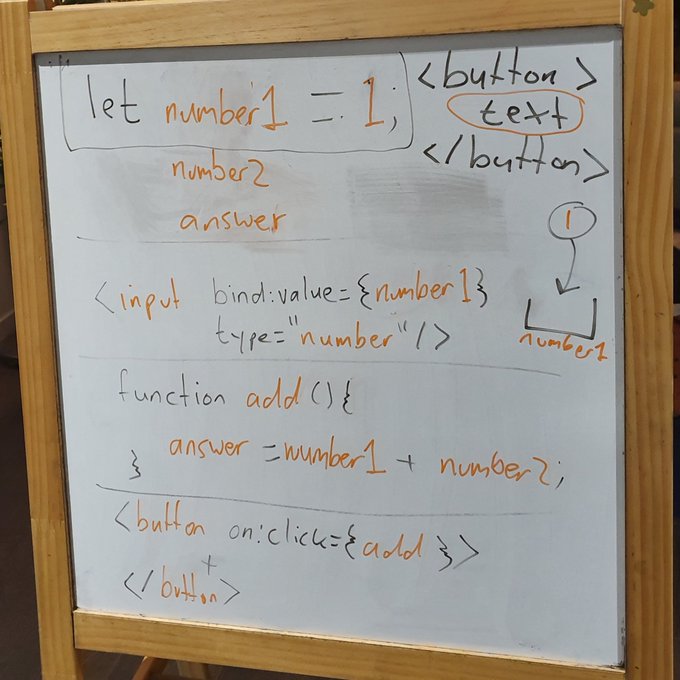 let number1 = 1;
number2
answer
<button>
text
</button>
1
number1
<input bind:value={number1}
type="number"/>
function add(){
answer = number1 + number2;
}
<button on:click={add}>
+
</button>